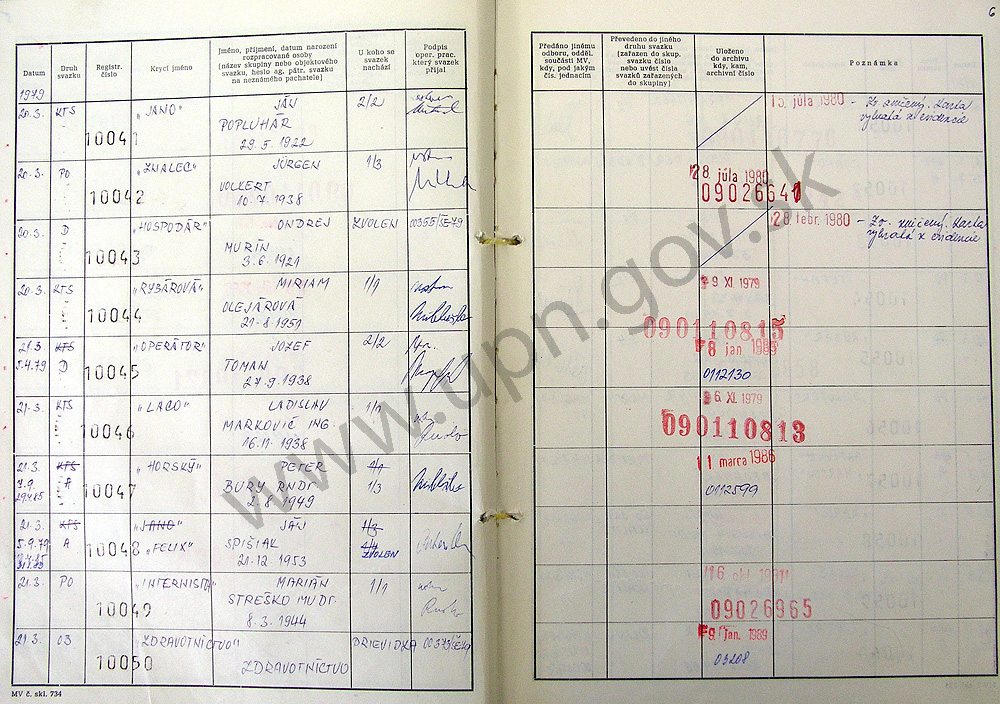 6
Datum
Druh svazku
Registr. číslo
Krycí jméno
Jméno, příjmení, datum narození
rozpracované osoby
(název skupiny nebo objektového
svazku, heslo ag. pátr. svazku
na neznámého pachatele)
U koho se
svazek
nachází
Podpis
oper. prac.
který svazek
přijal
Předáno jinému
odboru, odděl.
součásti MV,
kdy, pod jakým
čís. jednacím
Převedeno do jiného
druhu svazku
(zařazen do skup.
svazku číslo
nebo uvést čísla
svazků zařazených
do skupiny)
Uloženo
do archivu
kdy, kam,
archivní číslo
Poznámka
1979
20.3. KTS 10041 „JANO" JÁN 2/2
POPLUHÁR
29.5.1922
15. júla 1980 – Zv. zničený. Karta
vybratá z evidencie
20.3. PO 10042 „ZNALEC" JÜRGEN 1/3
VOLKERT
10.7.1938
28. júla 1980
09026641
20.3. D 10043 „HOSPODÁR" ONDREJ ZVOLEN
MURÍN
3.6.1921
28. febr. 1980 – Zv. zničený. Karta
vybratá z evidencie
20.3. KTS 10044 „RYBÁROVÁ" MIRIAM 1/1
OLEJÁROVÁ
21.8.1951
9 XI 1979
090110815
21.3 KTS 10045 „OPERÁTOR" JOZEF 2/2
5.4.79 D TOMAN
27.9.1938
8 jan 1989
0112130
21.3. KTS 10046 „LACO" LADISLAV 1/1
MARKOVIČ ING.
16.11.1938
26. XI. 1979
090110813
21.3. KTS 10047 „HORSKÝ" PETER 1/1
A BURY RNDr. 1/3
2.8.1949
11 marca 1986
0112599
21.3. KTS 10048 „JANO" JÁN 1/3
5.9.79 A „FELIX" SPIŠIAK ZVOLEN
21.12.1953
21.3. PO 10049 „INTERNISTA" MARIÁN 1/1
STREŠKO MUDr.
8.3.1944
09026965
21.3. 03 10050 „ZDRAVOTNÍCTVO" PRIEVIDZA
ZDRAVOTNÍCTVO
9. jan. 1989
03208
MV č. skl. 734
www.upn.gov.sk